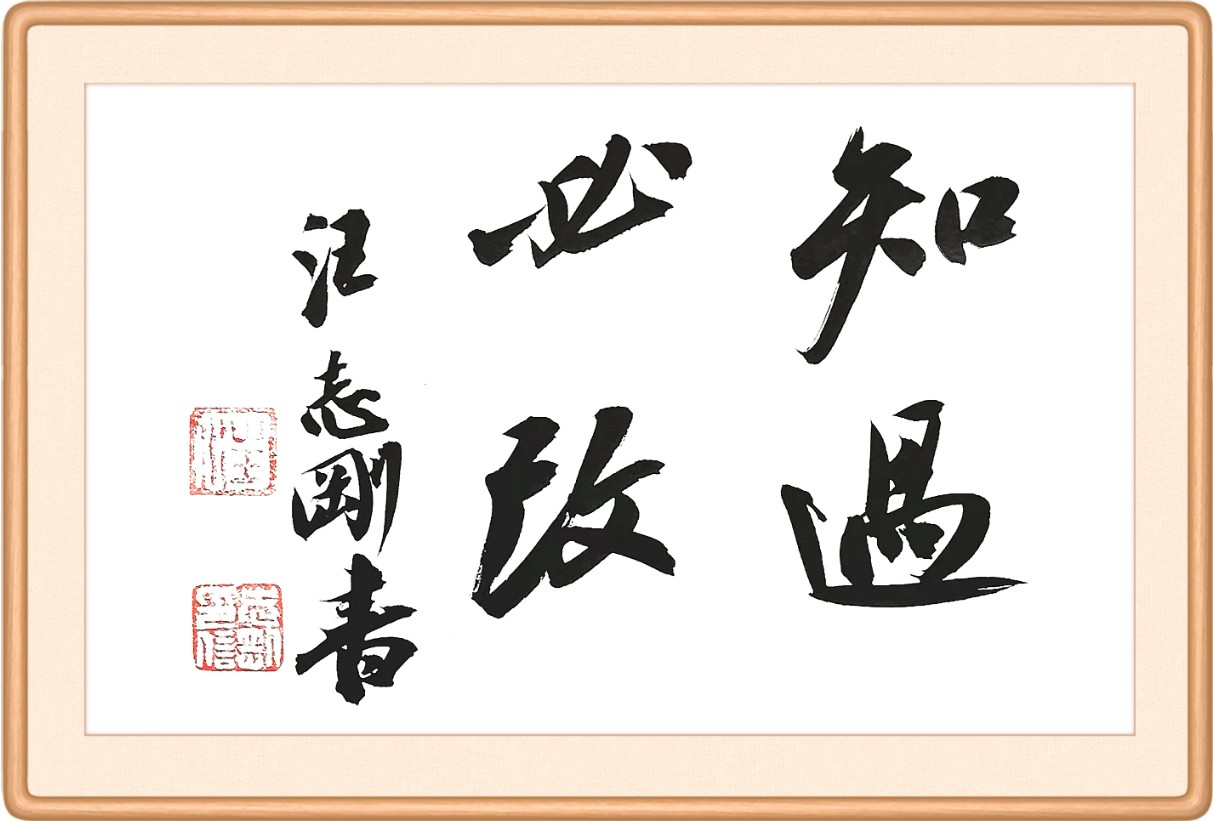 知過
必改
汪志剛書